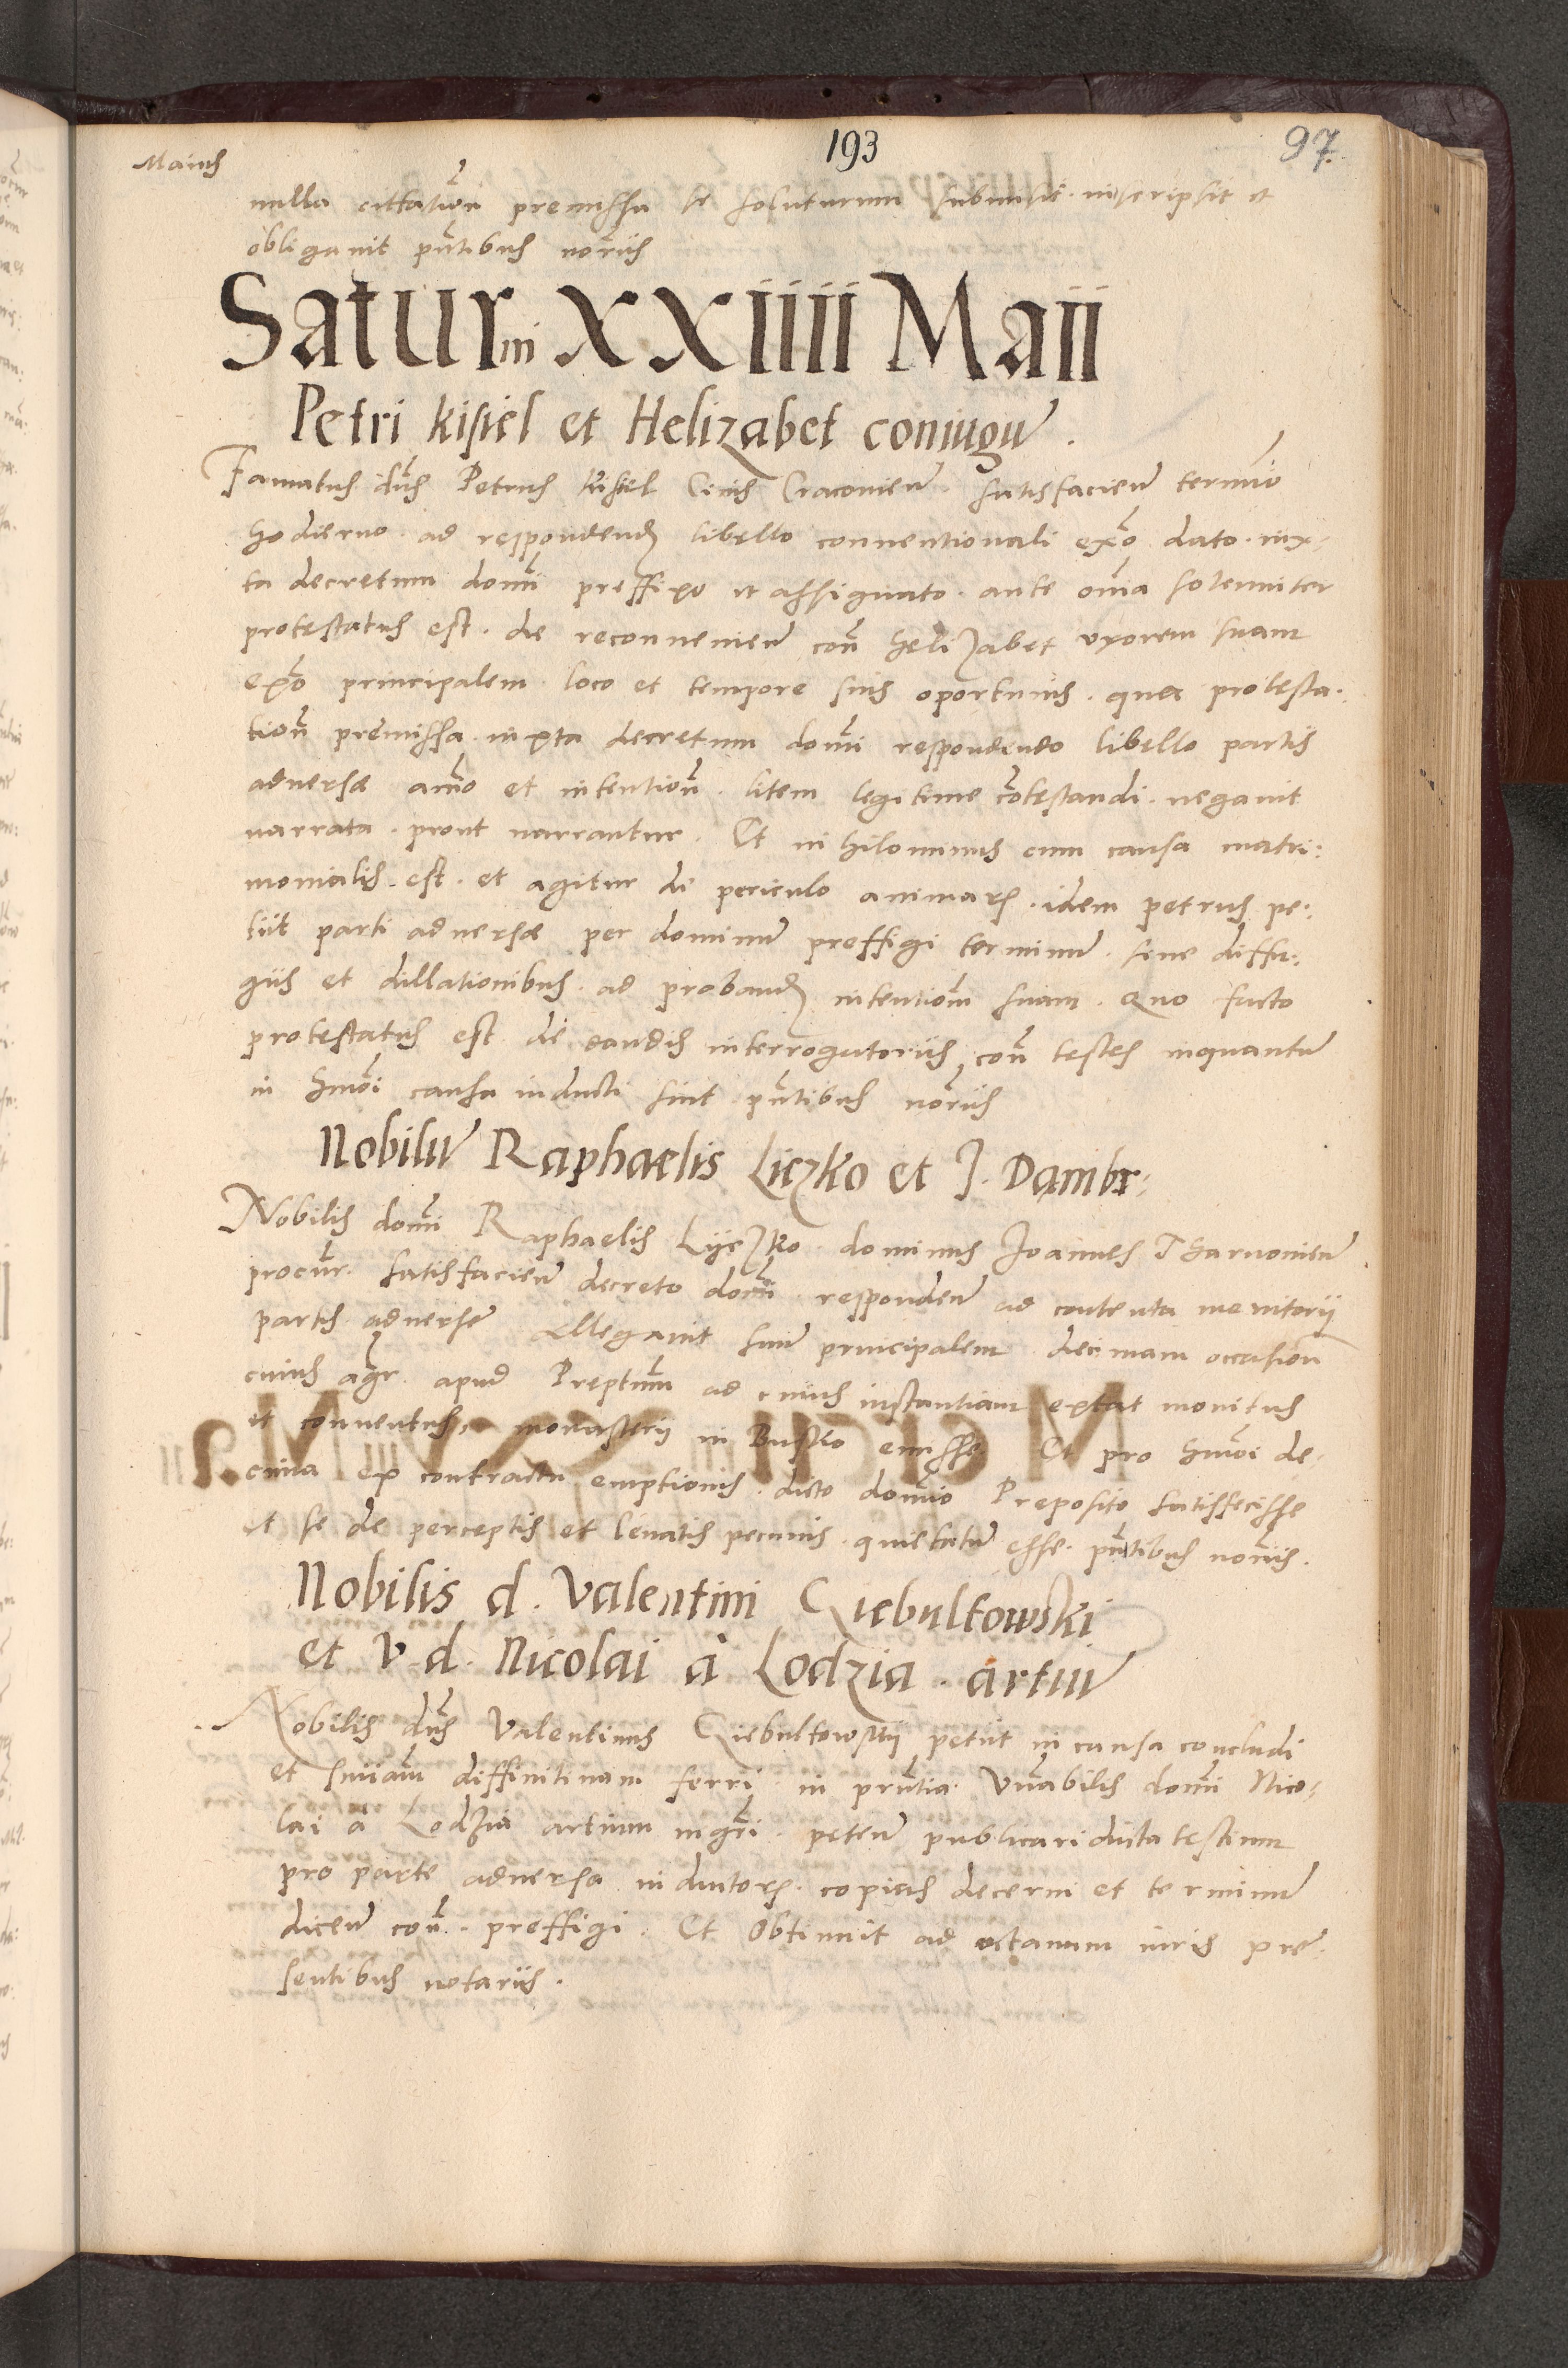 193
97.
Maius
nulla cittation̄ premissa se soluturum submisit inscripsit et
obligauit pn̄tibus nor̄iis
Saturni XXIIII Maii
Petri kisiel et Helizabet coniugu͂.
Famatus dn̄s Petrus kisiel Ciuis Cracouien̄ satisfacien̄ termi͂o
hodierno ad respondend̄ libello conuentionali ex̄o dato iux-
ta decretum domi͂ preffixo et assignato. ante om̄ia solenniter
protestatus est. de reconuenien̄ con̄ helizabet uxorem suam
ex̄o principalem loco et tempore suis oportunis. qua protesta-
tion̄ premissa iuxta decretum domi͂ respondendo libello partis
aduersæ ani͂o et intention̄. litem legitime cōtestandi. negauit
narrata prout narrantur. Et nihilominus cum causa matri:
monialis est. et agitur de periculo animarꝝ. idem petrus pe:
tiit parti aduersæ per dominu͂ preffigi terminu͂ sine diffu:
giis et dillationibus. ad proband̄ intentiōm suam. Quo facto
protestatus est de dandis interrogatoriis con̄ testes inquantu͂
in hmōi causa inducti sint pn̄tibus nor̄iis
Nobiliu͂ Raphaelis Liczko et J. Dambr:
Nobilis domi͂ Raphaelis Lyczko dominus Joannes Tharnouien̄
procūr. satisfacien̄ decreto domi͂ responden̄ ad contenta monitorii
partis aduerse͂ allegauit suu͂ principalem decimam occasion̄
cuius agr̄ apud Preptum̄ ad cuius instantiam extat monitus
et conuentus, monasterii in Busko emisse Et pro hmōi de:
cima ex contractu emptionis dicto domi͂o Preposito satisfecisse
et se de perceptis et leuatis pecuniis quietatu͂ esse. pn̄tibus nor̄iis.
Nobilis d. Valentini Giebultowski
et v. d. Nicolai à Lodzia. artiu͂
Nobilis dn̄s Valentinus Giebultowskij petiit in causa concludi
et sn̄iam diffinitiuam ferri in prn̄tia Vn̄abilis domi͂ Nico-
lai à Lodzia artium mgr̄i. peten̄ publicari dicta testium
pro parte aduersa inductorꝝ. copias decerni et terminu͂
dicen̄ con̄. preffigi. Et obtinuit ad octauam iuris pre͂
sentibus notariis.